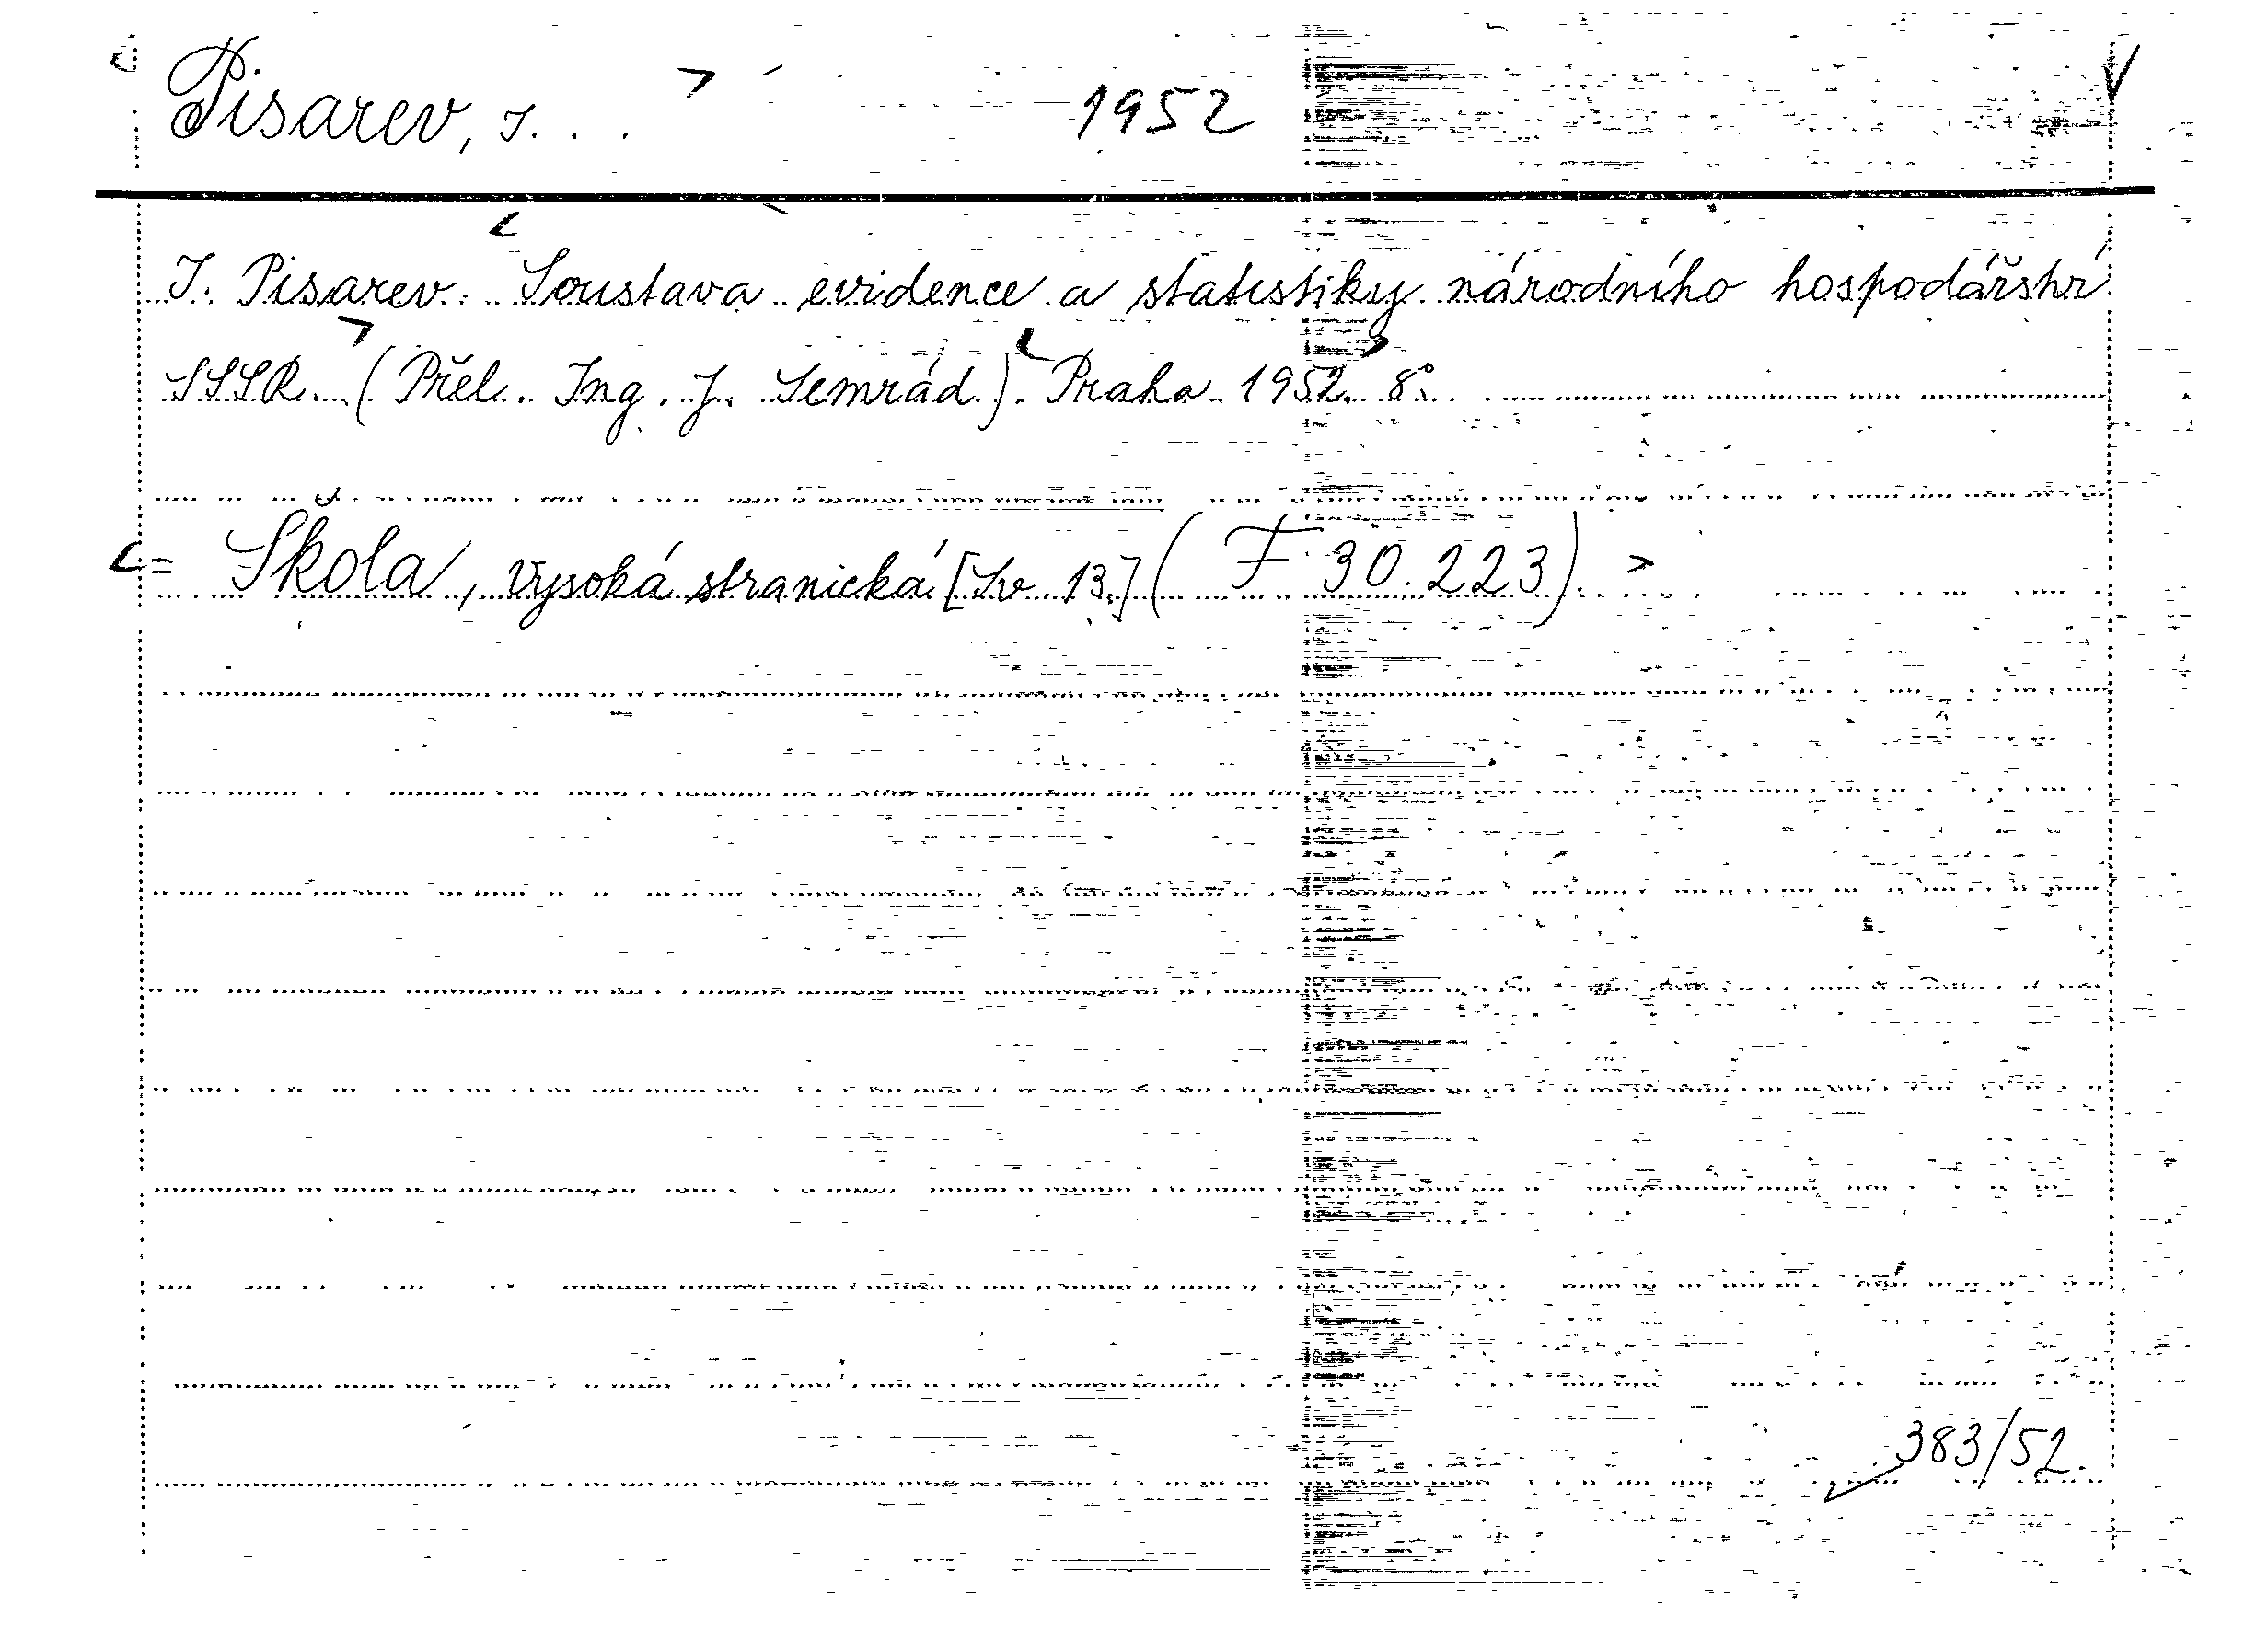 Pisarev, I. . . 1952
I. Pisarev: Soustava evidence a statistiky národního hospodářství
SSSR. (Přel. Ing. J. Semrád). Praha 1952. 8°.
= Škola, vysoká stranická [Sv. 13.] (F 30.223).
383/52.